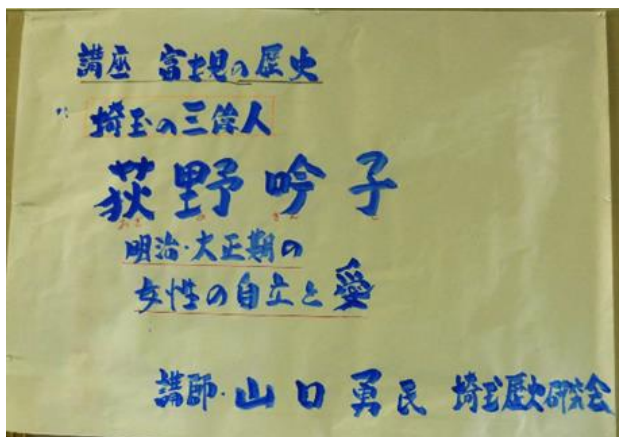 講座 富士見の歴史
埼玉の三偉人
荻野吟子
おぎ の ぎん こ
明治・大正期の
女性の自立と愛
講師・山口勇民 埼玉歴史研究会